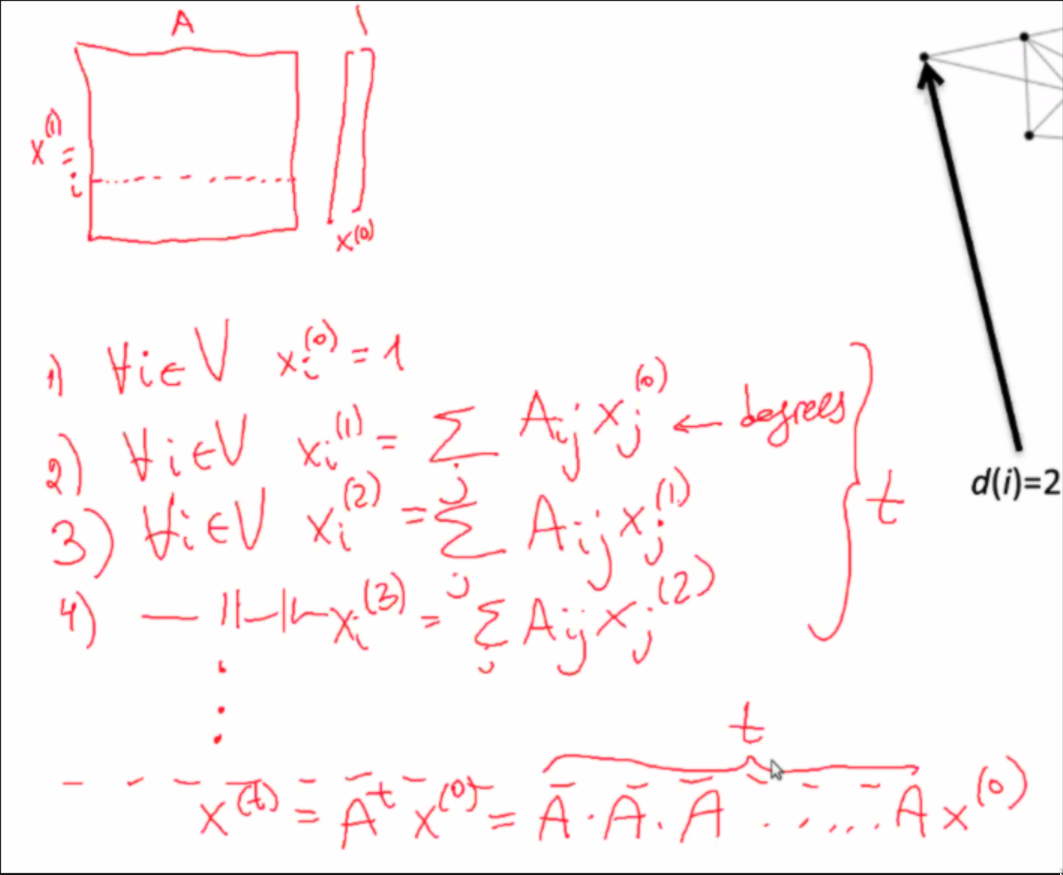 A 1
x^(1) =
i
x^(0)
1) ∀i∈V x_i^(0) = 1
2) ∀i∈V x_i^(1) = Σ_j A_ij x_j^(0) ← degrees
3) ∀i∈V x_i^(2) = Σ_j A_ij x_j^(1)
t
d(i)=2
4) —||—||— x_i^(3) = Σ_j A_ij x_j^(2)
t
x^(t) = A^t x^(0) = A · A · A · . , . . . . A x^(0)